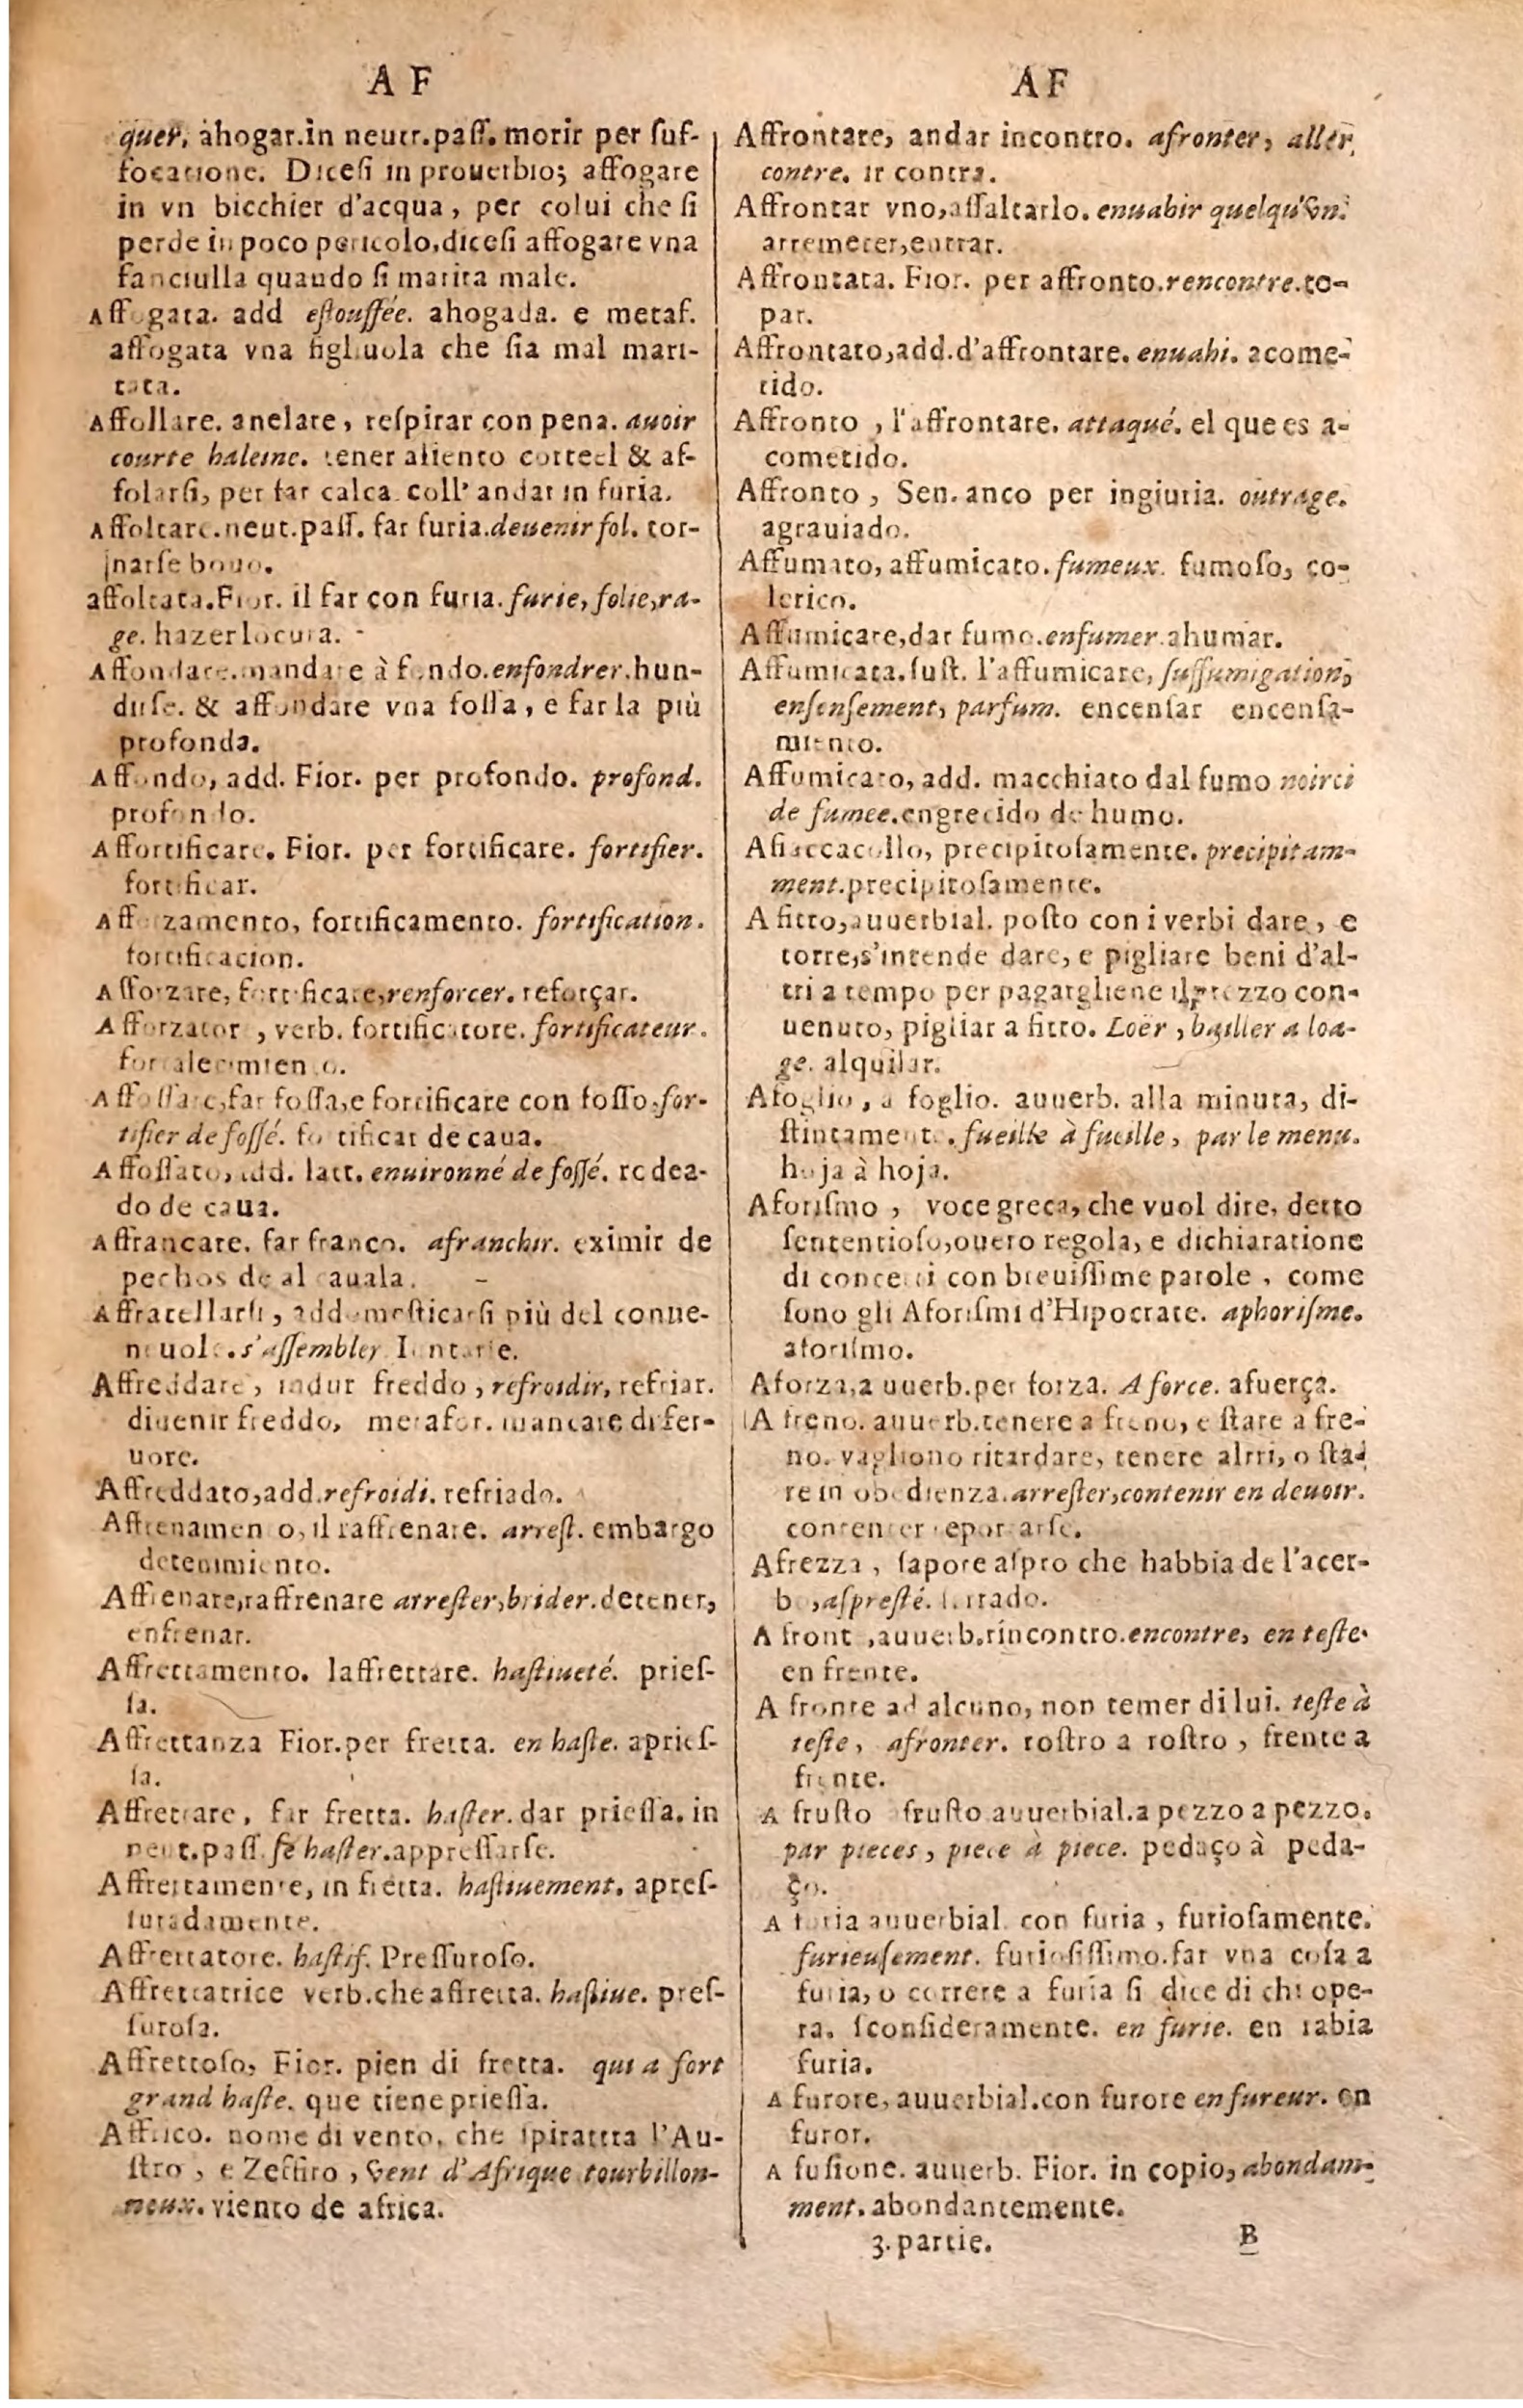 A F
quer. ahogar.in neutr.paſſ. morir per ſuf-
focatione. Diceſi in prouerbio; affogare
in vn bicchier d'acqua, per colui che ſi
perde in poco pericolo,diceſi affogare vna
fanciulla quando ſi marita male.
Affogata. add eſtouſſée. ahogada. e metaf.
affogata vna figliuola che ſia mal mari-
tata.
Affollare. anelare, reſpirar con pena. auoir
courte haleine. tener aliento corteel & af-
folarſi, per far calca coll' andar in furia.
Affoltare.neut.paſſ. far furia.deuenir fol. tor-
narſe bouo.
affoltata.Fior. il far con furia.furie, folie,ra-
ge. hazer locura.
Affondare.mandare à fondo.enfondrer.hun-
diſe. & affondare vna foſſa, e far la più
profonda.
Affondo, add. Fior. per profondo. profond.
profondo.
Affortificare. Fior. per fortificare. fortifier.
fortificar.
Afforzamento, fortificamento. fortification.
fortificacion.
Afforzare, fortificare,renforcer. reforçar.
Afforzator , verb. fortificatore. fortificateur.
fortalecimiento.
Affoſſare,far foſſa,e fortificare con foſſo.for-
tifier de foſſé. fortificar de caua.
Affoſſato, add. latt. enuironné de foſſé. rodea-
do de caua.
Affrancare. far franco. afranchir. eximir de
pechos de al cauala.
Affratellarſi, addomeſticarſi più del conue-
neuole. s'aſſembler
Affreddare, indur freddo, refroidir, refriar.
diuenir freddo, metafor. mancare di fer-
uore.
Affreddato,add.refroidi. refriado.
Affrenamen o, il raffrenare. arreſt. embargo
detenimiento.
Affrenare,raffrenare arreſter,brider.detener,
enfrenar.
Affrettamento. laffrettare. haſtiueté. prieſ-
ſa.
Affrettanza Fior.per fretta. en haſte. aprieſ-
ſa.
Affrettare, far fretta. haſter. dar prieſſa. in
neut.paſſ. ſe haſter.appreſſarſe.
Affrettamente, in fretta. haſtiuement. apreſ-
ſuradamente.
Affrettatore. haſtif. Preſſuroſo.
Affrettatrice verb.che affretta. haſtiue. preſ-
ſuroſa.
Affrettoſo, Fior. pien di fretta. qui a fort
grand haſte. que tiene prieſſa.
Affrico. nome di vento, che ſpirattra l'Au-
ſtro, e Zeffiro, vent d'Afrique tourbillon-
neux. viento de africa.
A F
Affrontare, andar incontro. afronter, aller
contre. ir contra.
Affrontar vno,aſſaltarlo. enuahir quelqu'vn.
arremeter,entrar.
Affrontata. Fior. per affronto.rencontre.to-
par.
Affrontato,add.d'affrontare. enuahi. acome-
tido.
Affronto , l'affrontare. attaqué. el que es a-
cometido.
Affronto , Sen. anco per ingiuria. outrage.
agrauiado.
Affumato, affumicato. fumeux. fumoſo, co-
lerico.
Affumicare,dar fumo.enfumer.ahumar.
Affumicata.ſuſt. l'affumicare, ſuffumigation,
enſenſement, parfum. encenſar encenſa-
miento.
Affumicato, add. macchiato dal fumo noirci
de fumee.engrecido de humo.
Afiaccacollo, precipitoſamente. precipitam-
ment.precipitoſamente.
A fitto,auuerbial. poſto con i verbi dare, e
torre,s'intende dare, e pigliare beni d'al-
tri a tempo per pagargliene il prezzo con-
uenuto, pigliar a fitto. Loër , bailler a loa-
ge. alquilar.
Afoglio, a foglio. auuerb. alla minuta, di-
ſtintamente. fueille à fueille, par le menu.
hoja à hoja.
Aforiſmo , voce greca, che vuol dire, detto
ſententioſo,ouero regola, e dichiaratione
di concetti con breuiſſime parole , come
ſono gli Aforiſmi d'Hipocrate. aphoriſme.
aforiſmo.
Aforza,a uuerb.per forza. A force. afuerça.
A freno. auuerb.tenere a freno, e ſtare a fre-
no. vagliono ritardare, tenere altri, o ſta-
re in obedienza.arreſter,contenir en deuoir.
contener reportarſe.
Afrezza , ſapore aſpro che habbia de l'acer-
bo,aſpreſté.
A front ,auuerb.rincontro.encontre, en teſte.
en frente.
A fronte ad alcuno, non temer di lui. teſte à
teſte, afronter. roſtro a roſtro , frente a
frente.
A fruſto fruſto auuerbial.a pezzo a pezzo.
par pieces, piece à piece. pedaço à peda-
ço.
A furia auuerbial con furia , furioſamente.
furieuſement. furioſiſſimo.far vna coſa a
furia, o correre a furia ſi dice di chi ope-
ra. ſconſideramente. en furie. en rabia
furia.
A furore, auuerbial.con furore en fureur. en
furor.
A fuſione. auuerb. Fior. in copio, abondam-
ment. abondantemente.
3. partie. B